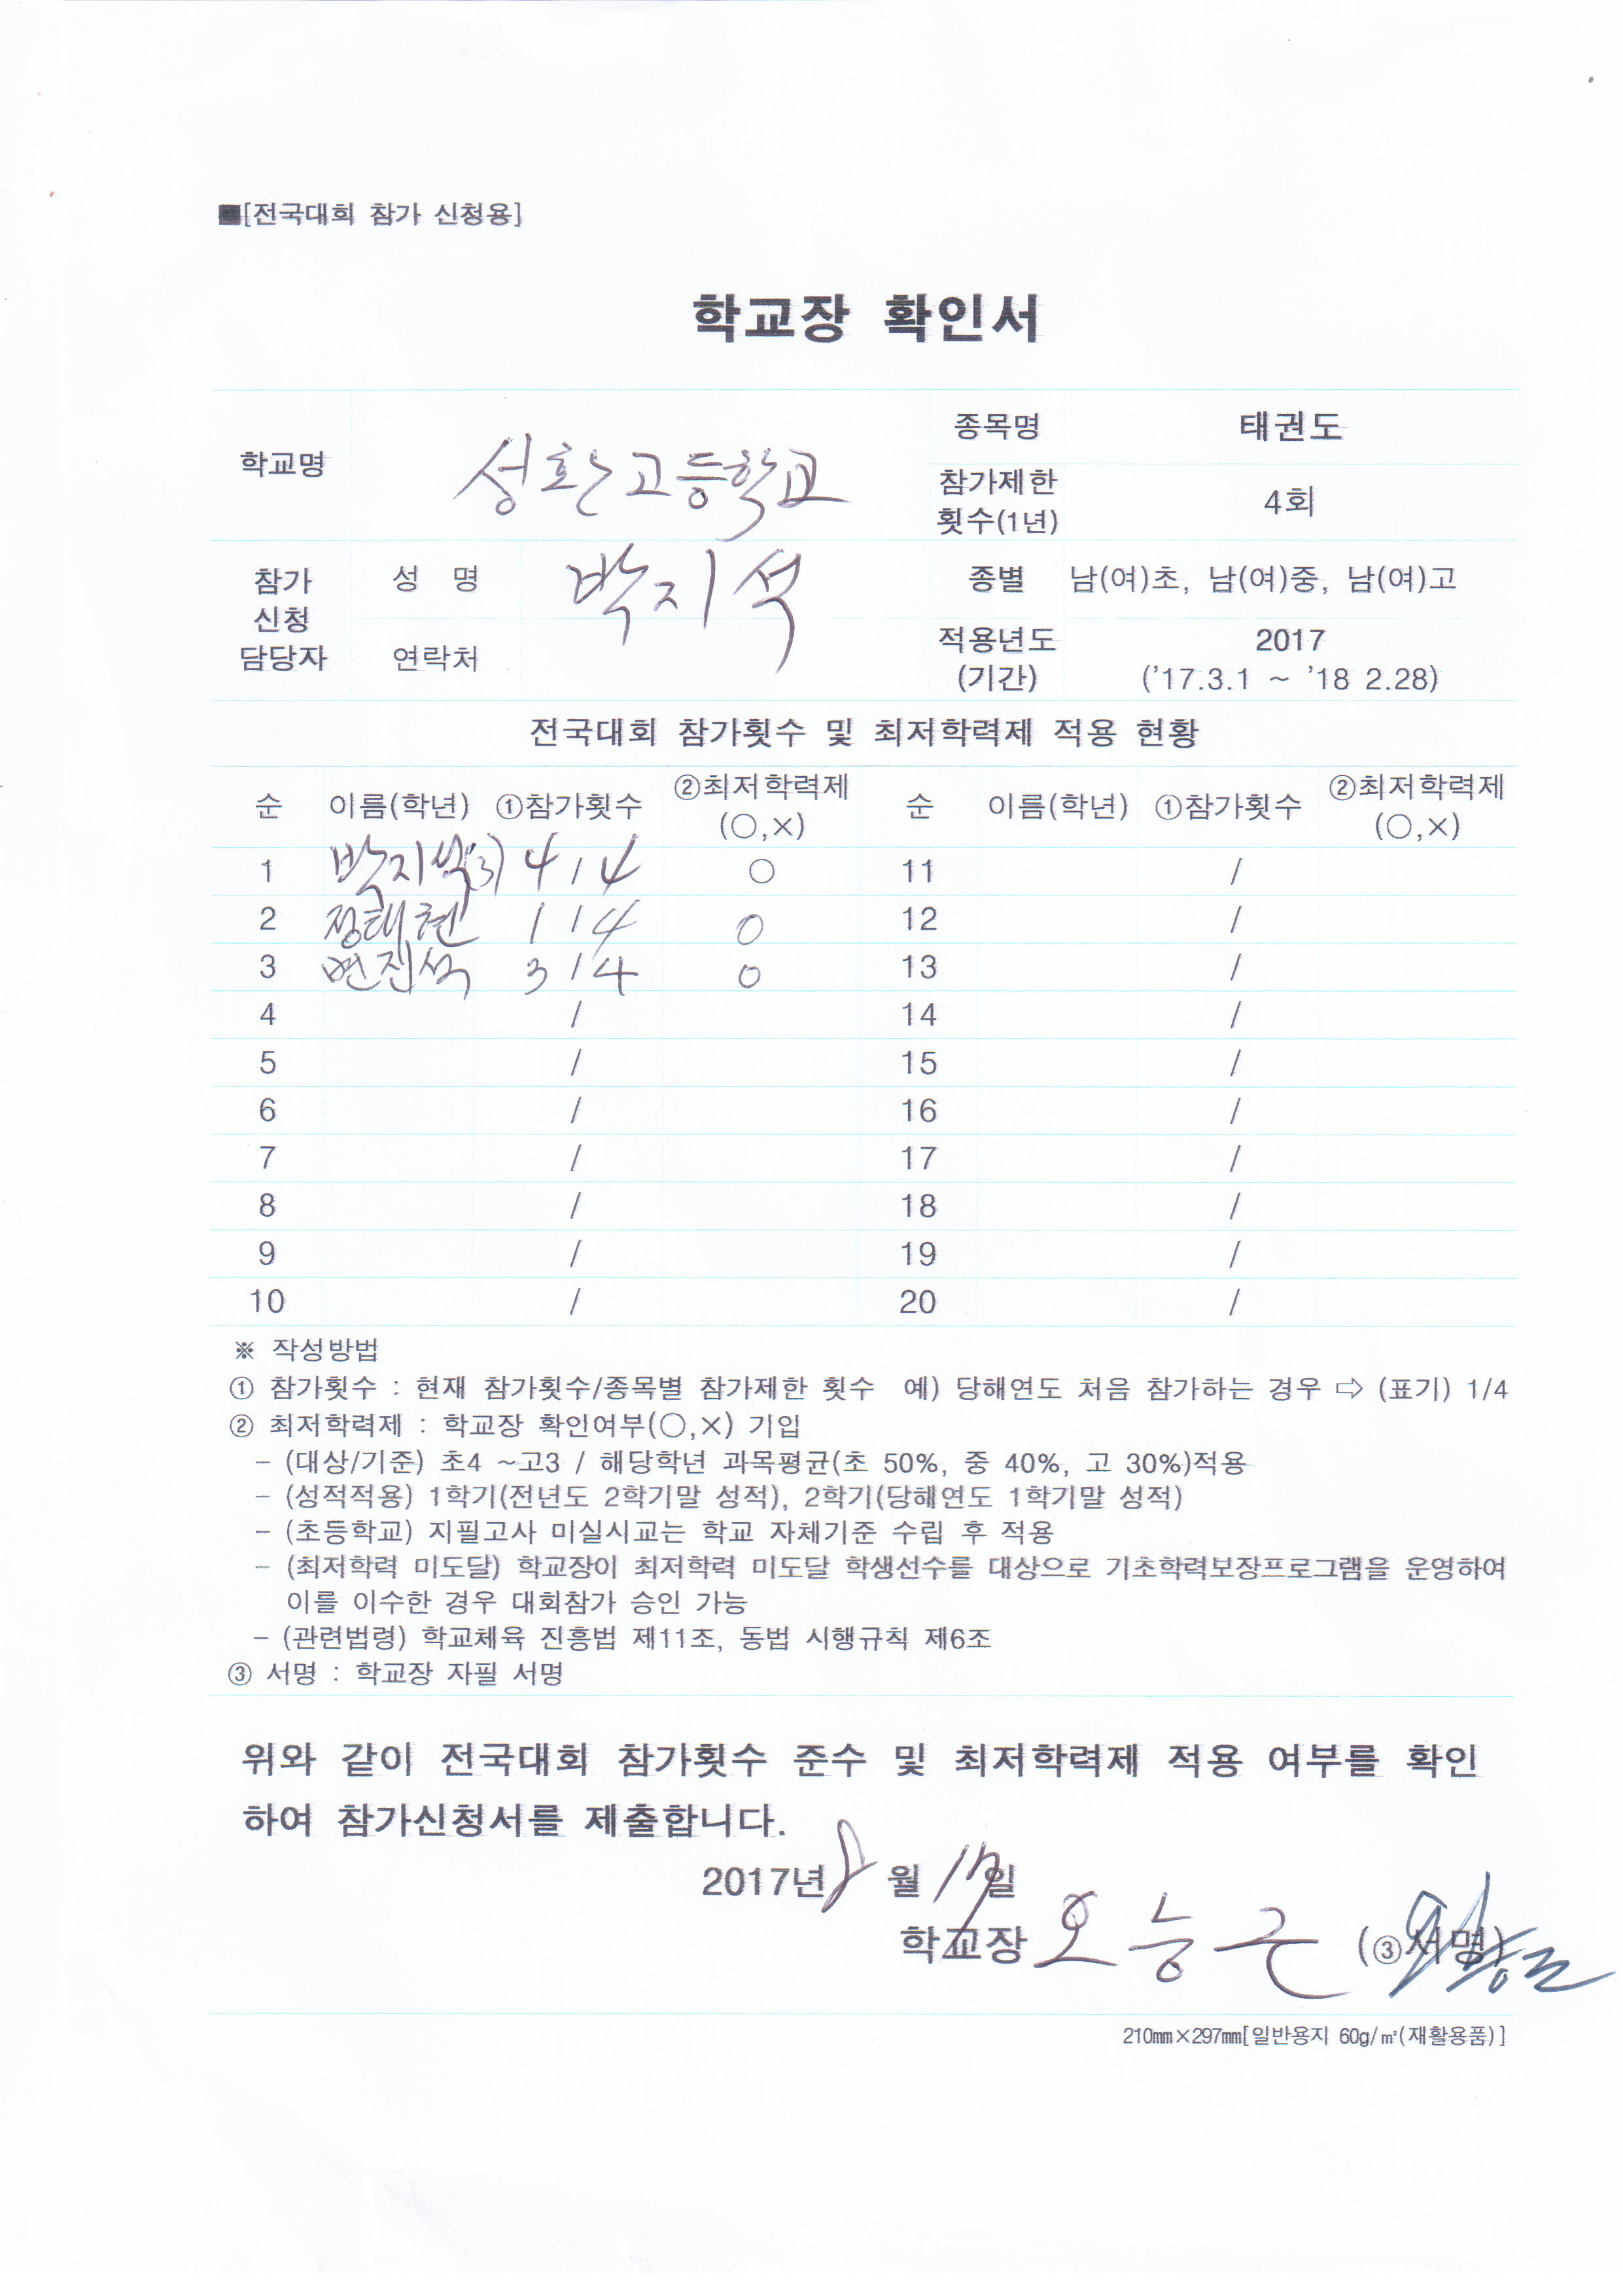 ■[전국대회 참가 신청용]
학교장 확인서
학교명 성환고등학교 종목명 태권도
참가제한 횟수(1년) 4회
참가 신청 담당자 성 명 박지석 종별 남(여)초, 남(여)중, 남(여)고
연락처 적용년도 (기간) 2017 ('17.3.1 ~ '18 2.28)
전국대회 참가횟수 및 최저학력제 적용 현황
순 이름(학년) ①참가횟수 ②최저학력제 (○,×) 순 이름(학년) ①참가횟수 ②최저학력제 (○,×)
1 박지석(3) 4 / 4 ○ 11 /
2 정태현 1 / 4 ○ 12 /
3 변진석 3 / 4 ○ 13 /
4 / 14 /
5 / 15 /
6 / 16 /
7 / 17 /
8 / 18 /
9 / 19 /
10 / 20 /
※ 작성방법
① 참가횟수 : 현재 참가횟수/종목별 참가제한 횟수 예) 당해연도 처음 참가하는 경우 ⇨ (표기) 1/4
② 최저학력제 : 학교장 확인여부(○,×) 기입
- (대상/기준) 초4 ~고3 / 해당학년 과목평균(초 50%, 중 40%, 고 30%)적용
- (성적적용) 1학기(전년도 2학기말 성적), 2학기(당해연도 1학기말 성적)
- (초등학교) 지필고사 미실시교는 학교 자체기준 수립 후 적용
- (최저학력 미도달) 학교장이 최저학력 미도달 학생선수를 대상으로 기초학력보장프로그램을 운영하여
이를 이수한 경우 대회참가 승인 가능
- (관련법령) 학교체육 진흥법 제11조, 동법 시행규칙 제6조
③ 서명 : 학교장 자필 서명
위와 같이 전국대회 참가횟수 준수 및 최저학력제 적용 여부를 확인
하여 참가신청서를 제출합니다.
2017년 8월 17일
학교장 오능근 (③서명)
210㎜×297㎜[일반용지 60g/㎡(재활용품)]